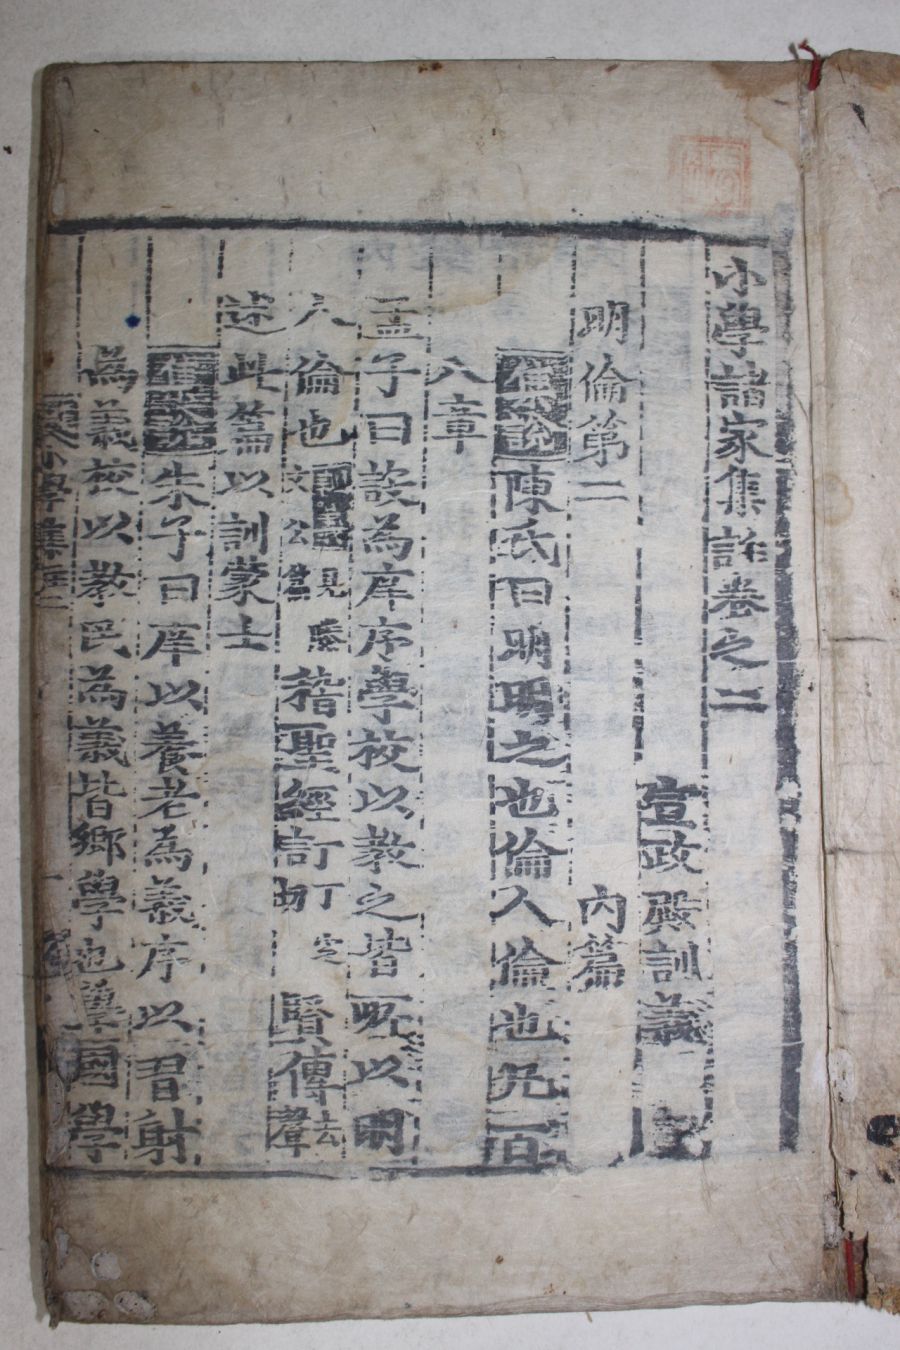 小學諸家集註卷之二
宣政殿訓義
明倫第二 內篇
集說 陳氏曰明明之也倫人倫也凡一百
八章
孟子曰設為庠序學校以敎之皆所以明
人倫也 見 文公篇 稽聖經訂 丁定 賢傳 去聲
述此篇以訓蒙士
集說 朱子曰庠以養老為義序以習射
為義校以敎民為義皆鄉學也學國學